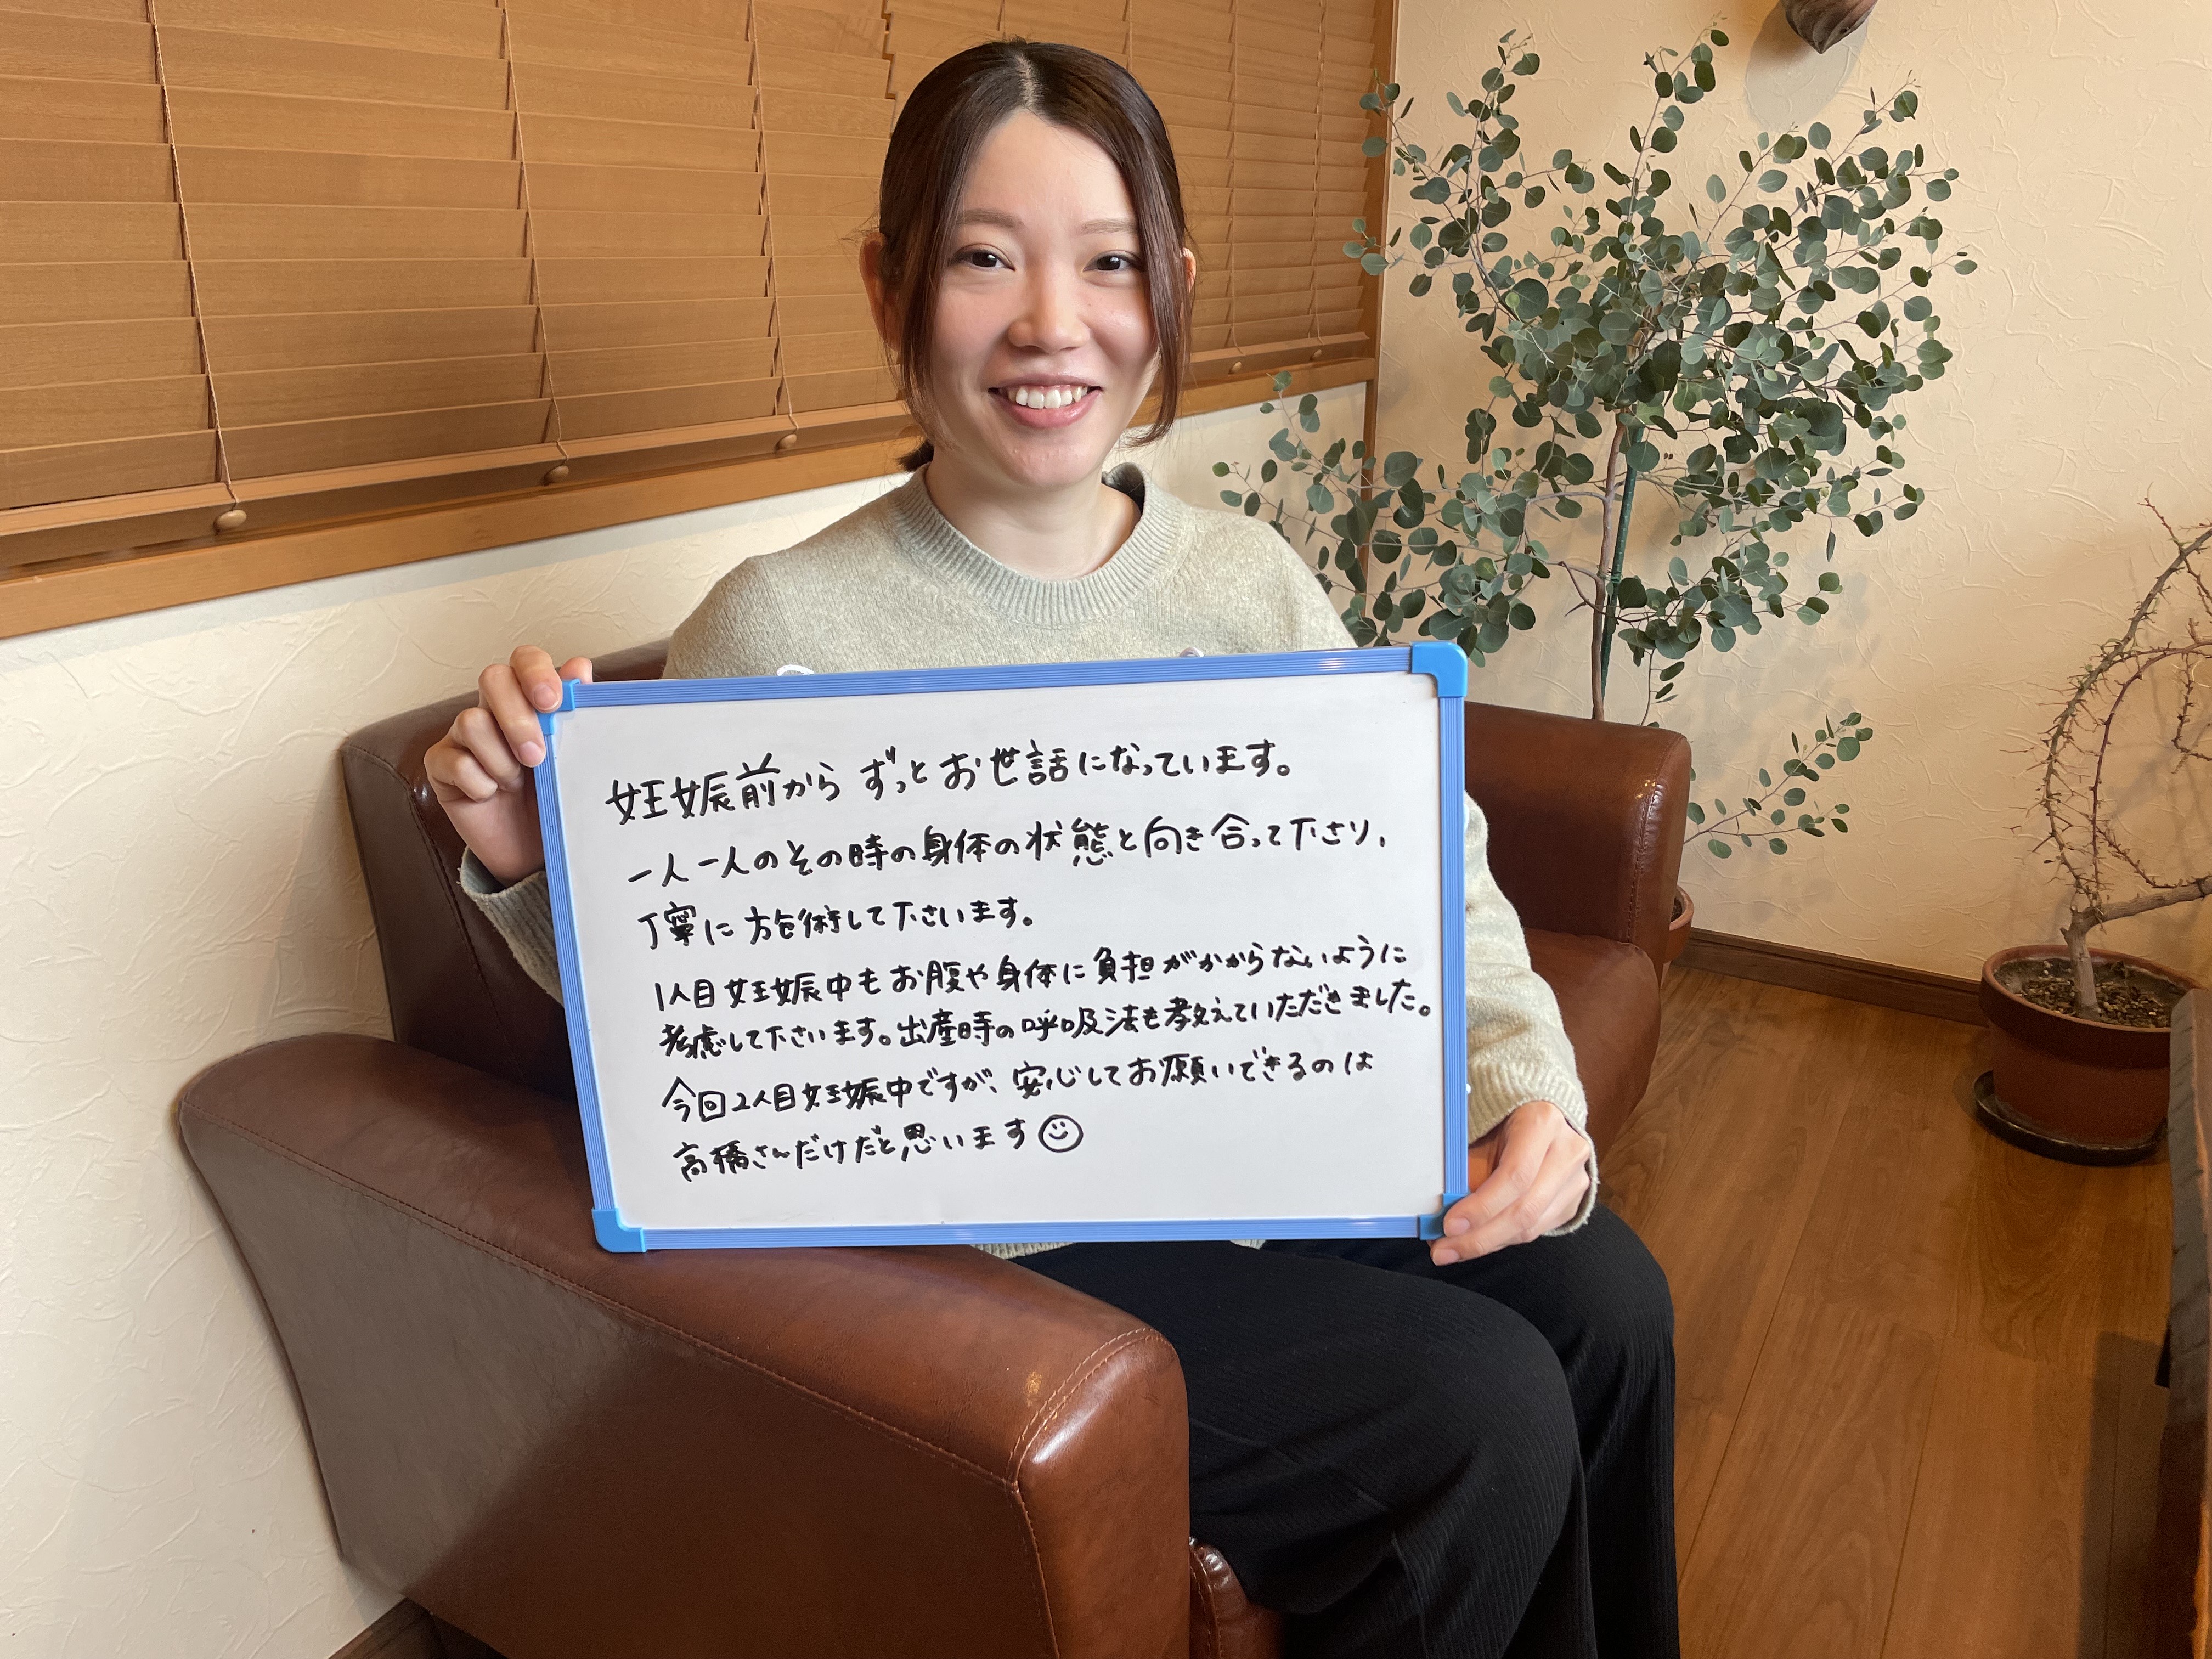 妊娠前から ずっと お世話になっています。
一人一人のその時の身体の状態と向き合って下さり、
丁寧に施術して下さいます。
1人目妊娠中もお腹や身体に負担がかからないように
考慮して下さいます。出産時の呼吸法も教えていただきました。
今回2人目妊娠中ですが、安心してお願いできるのは
高橋さんだけだと思います☺